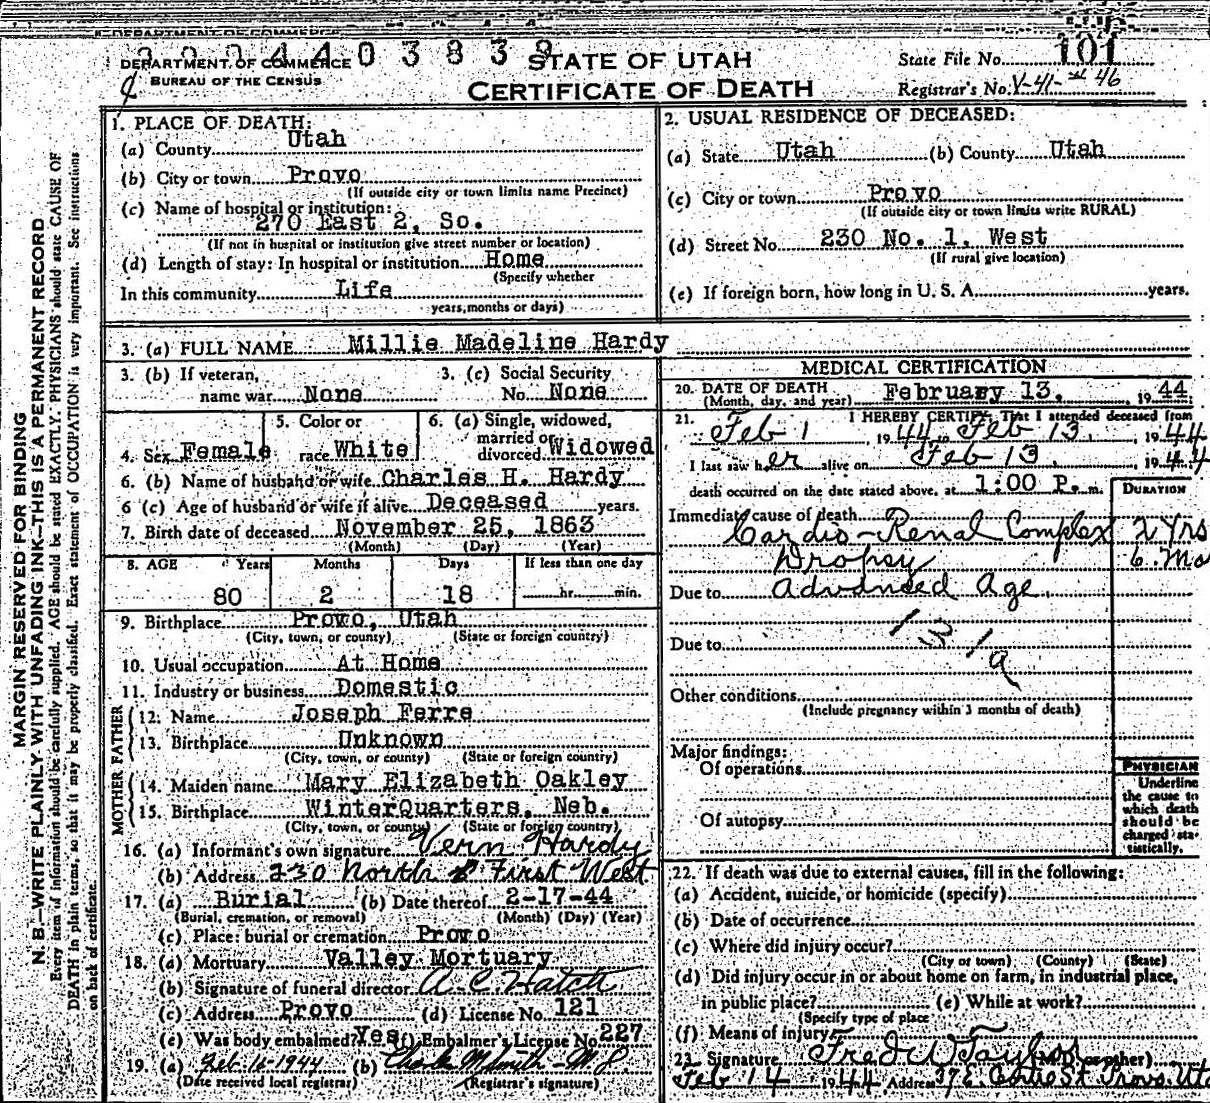 DEPARTMENT OF COMMERCE
BUREAU OF THE CENSUS
STATE OF UTAH
CERTIFICATE OF DEATH
State File No. 101
Registrar's No. V-41-# 46
MARGIN RESERVED FOR BINDING
N. B.—WRITE PLAINLY WITH UNFADING INK—THIS IS A PERMANENT RECORD
Every item of information should be carefully supplied. AGE should be stated EXACTLY. PHYSICIANS should state CAUSE OF
DEATH in plain terms, so that it may be properly classified. Exact statement of OCCUPATION is very important. See instructions
on back of certificate.
1. PLACE OF DEATH:
(a) County Utah
(b) City or town Provo
(If outside city or town limits name Precinct)
(c) Name of hospital or institution:
270 East 2, So.
(If not in hospital or institution give street number or location)
(d) Length of stay: In hospital or institution Home
(Specify whether
In this community Life
years, months or days)
2. USUAL RESIDENCE OF DECEASED:
(a) State Utah (b) County Utah
(c) City or town Provo
(If outside city or town limits write RURAL)
(d) Street No. 230 No. 1, West
(If rural give location)
(e) If foreign born, how long in U. S. A. years.
3. (a) FULL NAME Millie Madeline Hardy
3. (b) If veteran, name war None
3. (c) Social Security No. None
4. Sex Female
5. Color or race White
6. (a) Single, widowed, married or divorced Widowed
6. (b) Name of husband or wife Charles H. Hardy
6 (c) Age of husband or wife if alive Deceased years.
7. Birth date of deceased November 25, 1863
(Month) (Day) (Year)
8. AGE Years Months Days If less than one day
80 2 18 hr. min.
9. Birthplace Provo, Utah
(City, town, or county) (State or foreign country)
10. Usual occupation At Home
11. Industry or business Domestic
FATHER
12. Name Joseph Ferre
13. Birthplace Unknown
(City, town, or county) (State or foreign country)
MOTHER
14. Maiden name Mary Elizabeth Oakley
15. Birthplace WinterQuarters, Neb.
(City, town, or county) (State or foreign country)
16. (a) Informant's own signature Vern Hardy
(b) Address 230 North First West
17. (a) Burial (b) Date thereof 2-17-44
(Burial, cremation, or removal) (Month) (Day) (Year)
(c) Place: burial or cremation Provo
18. (a) Mortuary Valley Mortuary
(b) Signature of funeral director A. C. Hatch
(c) Address Provo (d) License No. 121
(e) Was body embalmed? Yes (f) Embalmer's License No. 227
19. (a) Feb-16-1944 (b) Charles M Smith - M D
(Date received local registrar) (Registrar's signature)
MEDICAL CERTIFICATION
20. DATE OF DEATH February 13, 1944
(Month, day, and year)
21. I HEREBY CERTIFY, That I attended deceased from
Feb 1, 1944 to Feb 13, 1944
I last saw her alive on Feb 13, 1944
death occurred on the date stated above, at 1:00 P. m.
DURATION
Immediate cause of death
Cardio-Renal Complex 2 Yrs
Dropsy 6. Mo
Due to Advanced Age
Due to 131a
Other conditions
(Include pregnancy within 3 months of death)
Major findings:
Of operations
Of autopsy
PHYSICIAN
Underline
the cause to
which death
should be
charged sta-
tistically.
22. If death was due to external causes, fill in the following:
(a) Accident, suicide, or homicide (specify)
(b) Date of occurrence
(c) Where did injury occur?
(City or town) (County) (State)
(d) Did injury occur in or about home on farm, in industrial place,
in public place? (e) While at work?
(Specify type of place
(f) Means of injury
23. Signature Fred W Taylor (M.D. or other)
Feb 14 1944 Address 37 E. Center St. Provo, Uta